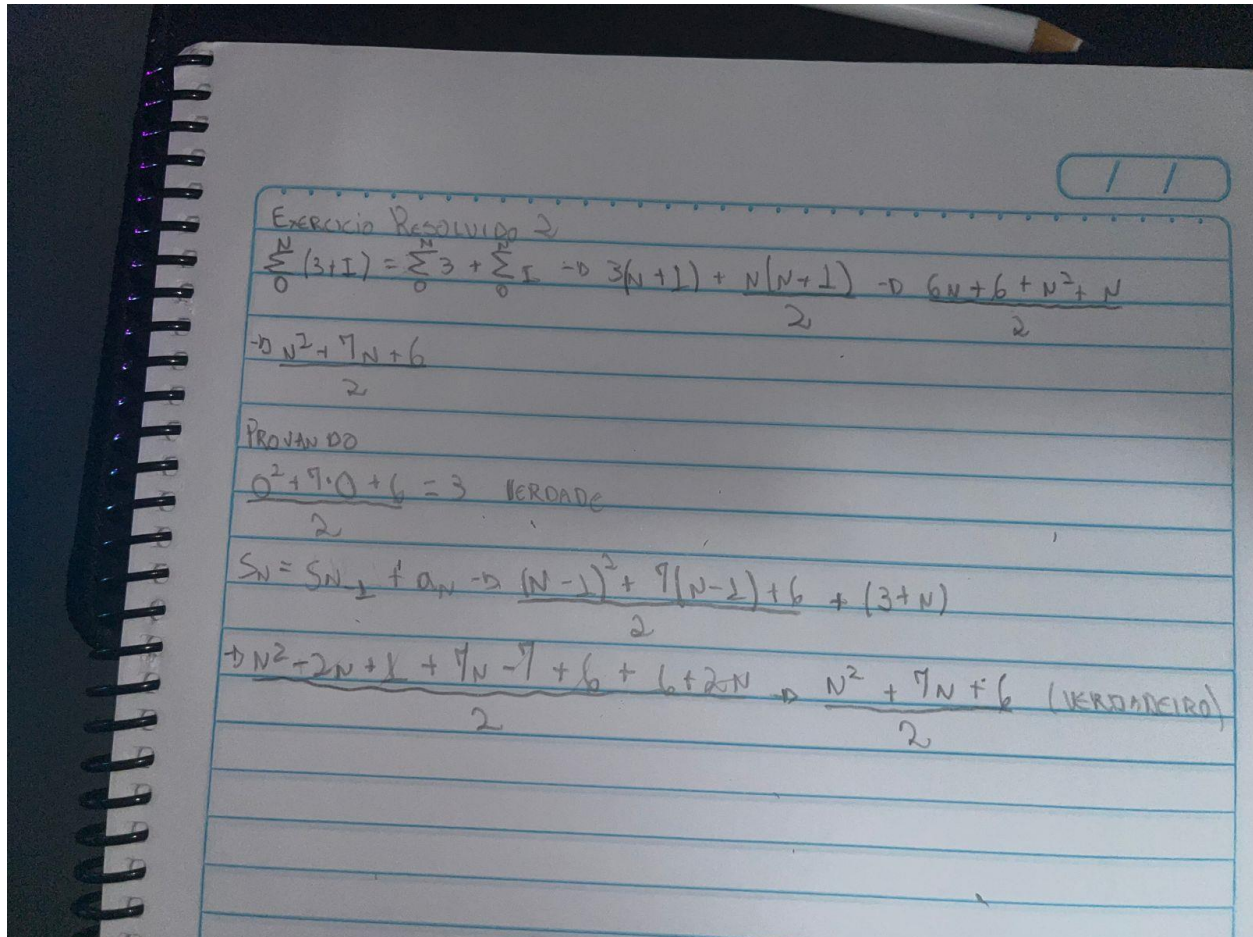 EXERCICIO RESOLVIDO 2
N∑0 (3+I) = N∑0 3 + N∑0 I → 3(N+1) + N(N+1)/2 → 6N+6+N²+N/2
→ N²+7N+6/2
PROVANDO
0²+7·0+6/2 = 3 VERDADE
SN = SN-1 + aN → (N-1)²+7(N-1)+6/2 + (3+N)
→ N²-2N+1+7N-7+6+6+2N/2 → N²+7N+6/2 (VERDADEIRO)